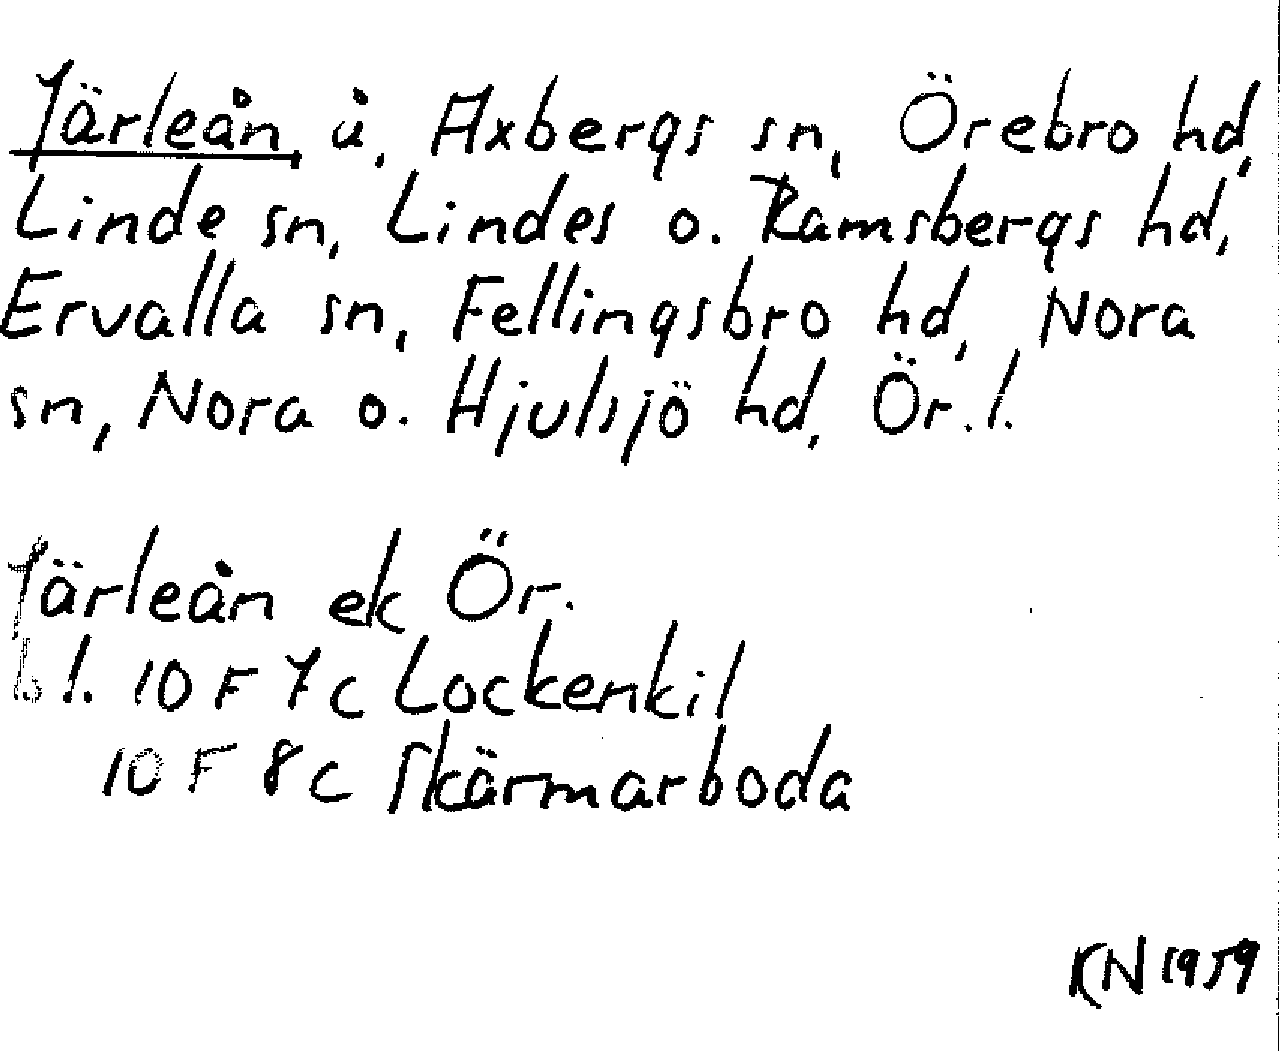 Järleån, å, Axbergs sn, Örebro hd,
Linde sn, Lindes o. Ramsbergs hd,
Ervalla sn, Fellingsbro hd, Nora
sn, Nora o. Hjulsjö hd, Ör. l.
Järleån ek Ör.
bl. 10 F 7c Lockenkil
10 F 8c Skärmarboda
KN 1959